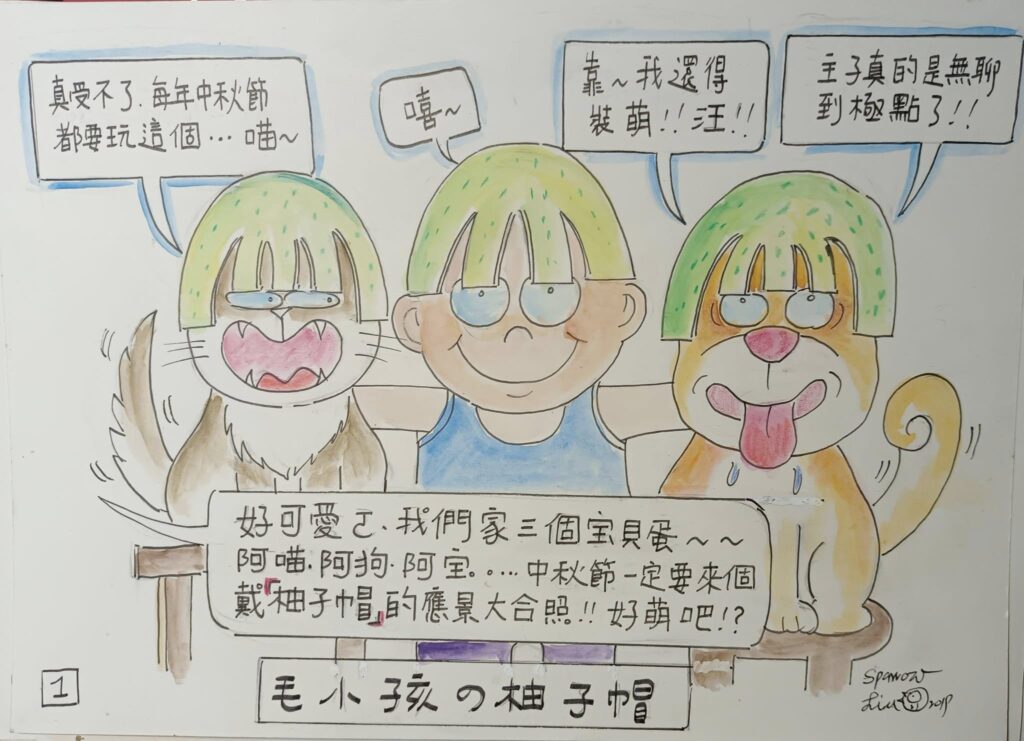 真受不了.每年中秋節
都要玩這個…喵~
嘻~
靠~我還得
裝萌!!汪!!
主子真的是無聊
到極點了!!
好可愛ㄛ.我們家三個宝貝蛋~~
阿喵.阿狗.阿宝。…中秋節一定要來個
戴「柚子帽」的應景大合照!!好萌吧!?
毛小孩の柚子帽
1
Sparrow
Liu 2019